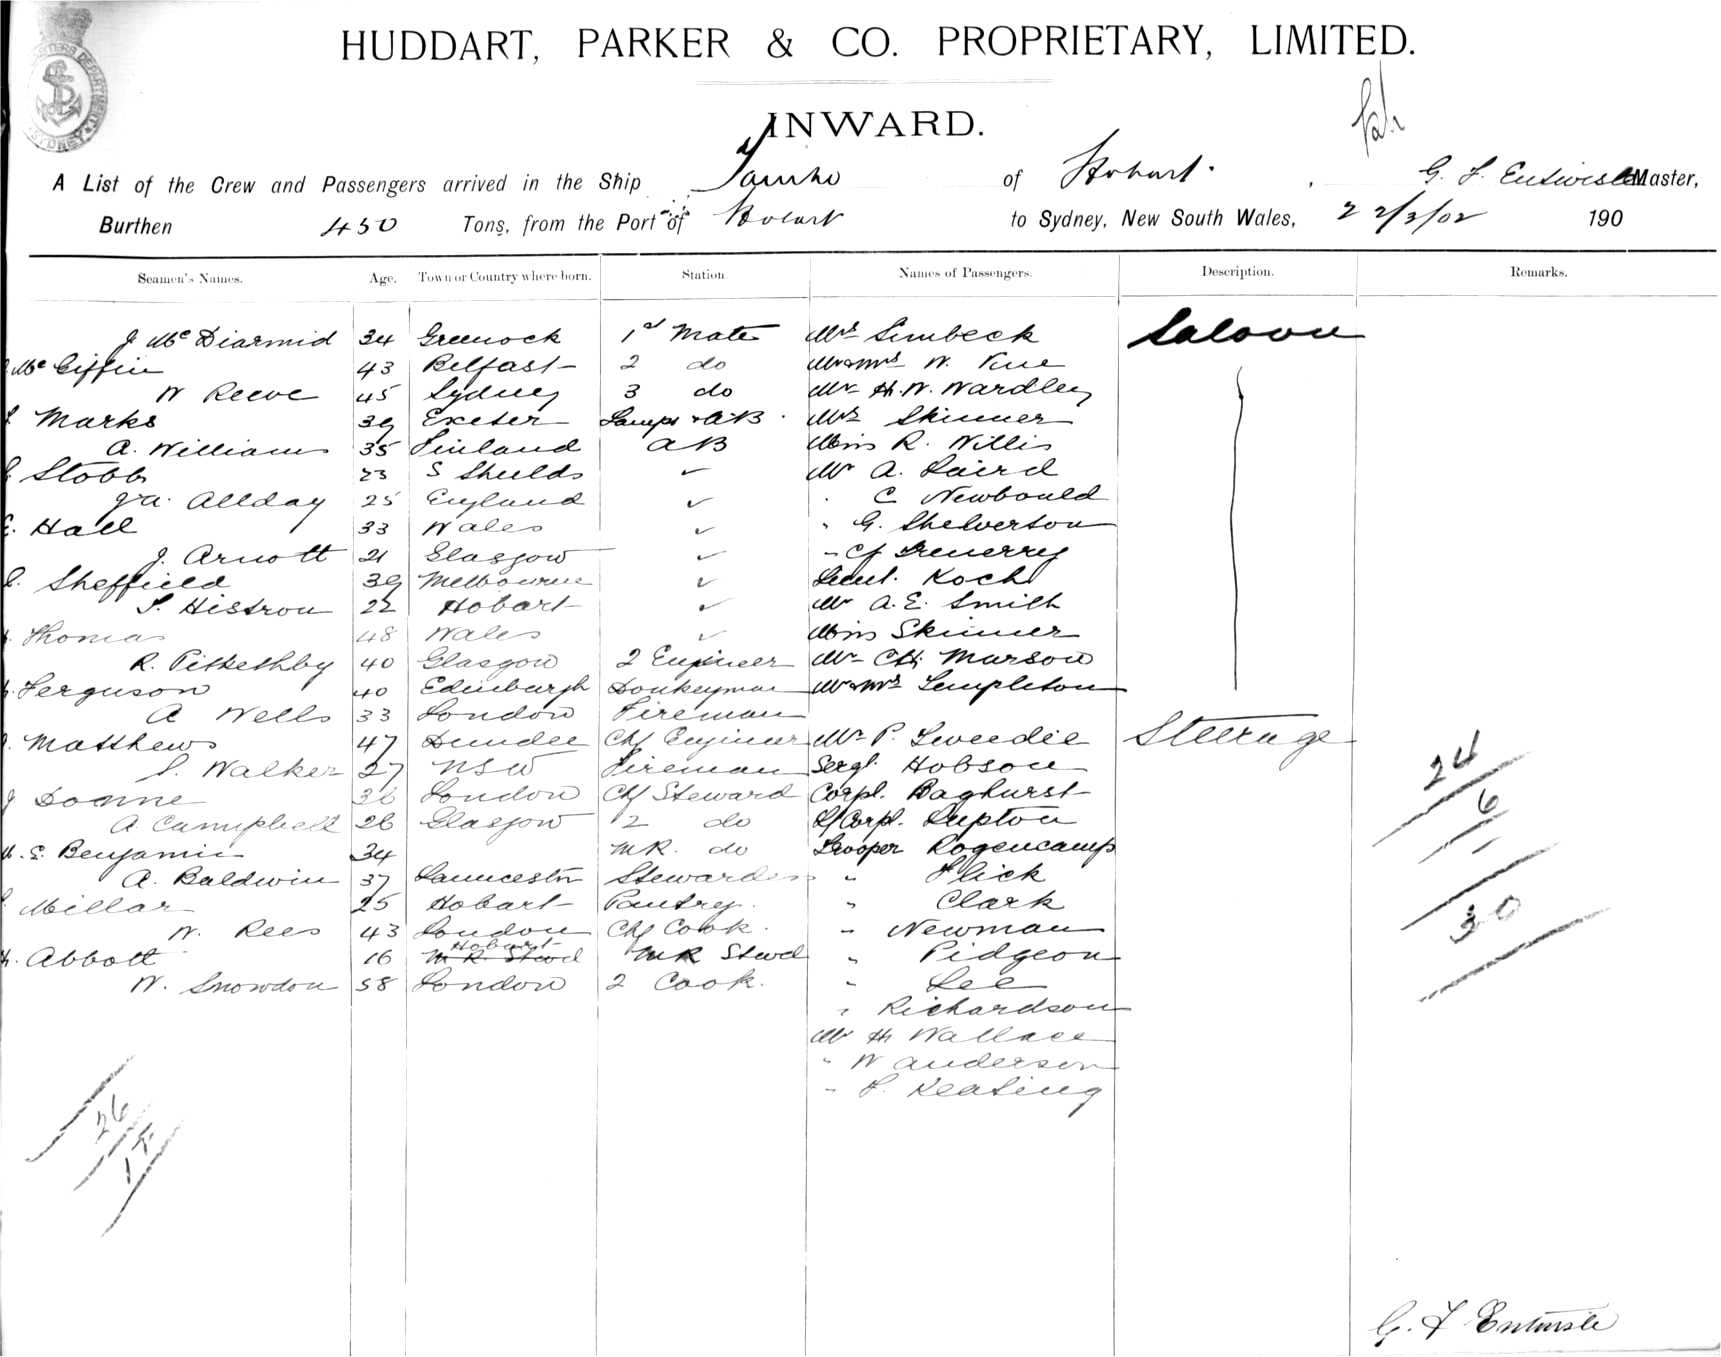 HUDDART, PARKER & CO. PROPRIETARY, LIMITED.
INWARD.
A List of the Crew and Passengers arrived in the Ship of Hobart. , Master,
Burthen 450 Tons, from the Port of Hobart to Sydney, New South Wales, 22/3/02 190
Seamen's Names. Age. Town or Country where born. Station Names of Passengers. Description. Remarks.
J McDiarmid 34 Greenock 1st Mate Mrs Limbeck Saloon
McGiffin 43 Belfast 2 do Mr & Mrs W.
W Reeve 45 Sydney 3 do Mr H.W. Wardley
Marks 39 Exeter Lamps & AB Mrs Skinner
A. Williams 35 Finland AB Miss R. Willis
Stobb 23 S Shields ✓ Mr A. Laird
J.A. Allday 25 England ✓ C Newbould
Hall 33 Wales ✓ " G. Shelverton
J. Arnott 21 Glasgow ✓
Sheffield 39 Melbourne ✓ Lieut. Koch
Histron 22 Hobart ✓ Mr A.E. Smith
Thomas 48 Wales ✓ Miss Skinner
R. Pitkethly 40 Glasgow 2 Engineer Mr Marson
Ferguson 40 Edinburgh Donkeyman Mr & Mrs Templeton
A Wells 33 London Fireman
Matthews 47 Dundee Chf Engineer Mr P. Tweedie Steerage
S. Walker 27 NSW Fireman Sergt. Hobson
J Doanne 36 London Chf Steward Corpl. Baghurst
A Campbell 26 Glasgow 2 do L/Corpl. Lupton
Benjamin 34 M.R. do Trooper Rogencamp
A. Baldwin 37 Launceston Stewardess " Flick
Millar 25 Hobart Pantry. " Clark
W. Rees 43 London Chf Cook. " Newman
Abbott 16 M R Stwd Hobart M R Stwd " Pidgeon
W. Snowdon 58 London 2 Cook. " Lee
" Richardson
Mr H Wallace
" W Anderson
" P. Keating
24
6
30
26
G. F Entwisle